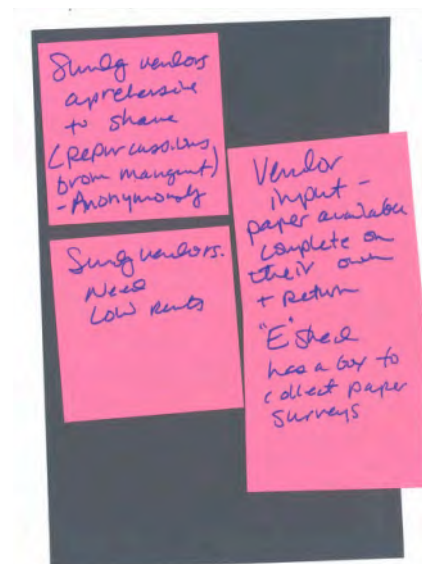 Sunday vendors
aprehensive
to share
(Repurcussions
from mangmnt)
- Anonymously
Sunday vendors.
Need
Low rents
Vendor
input -
paper available
complete on
their own
+ Return
"E" shed
has a box to
collect paper
surveys